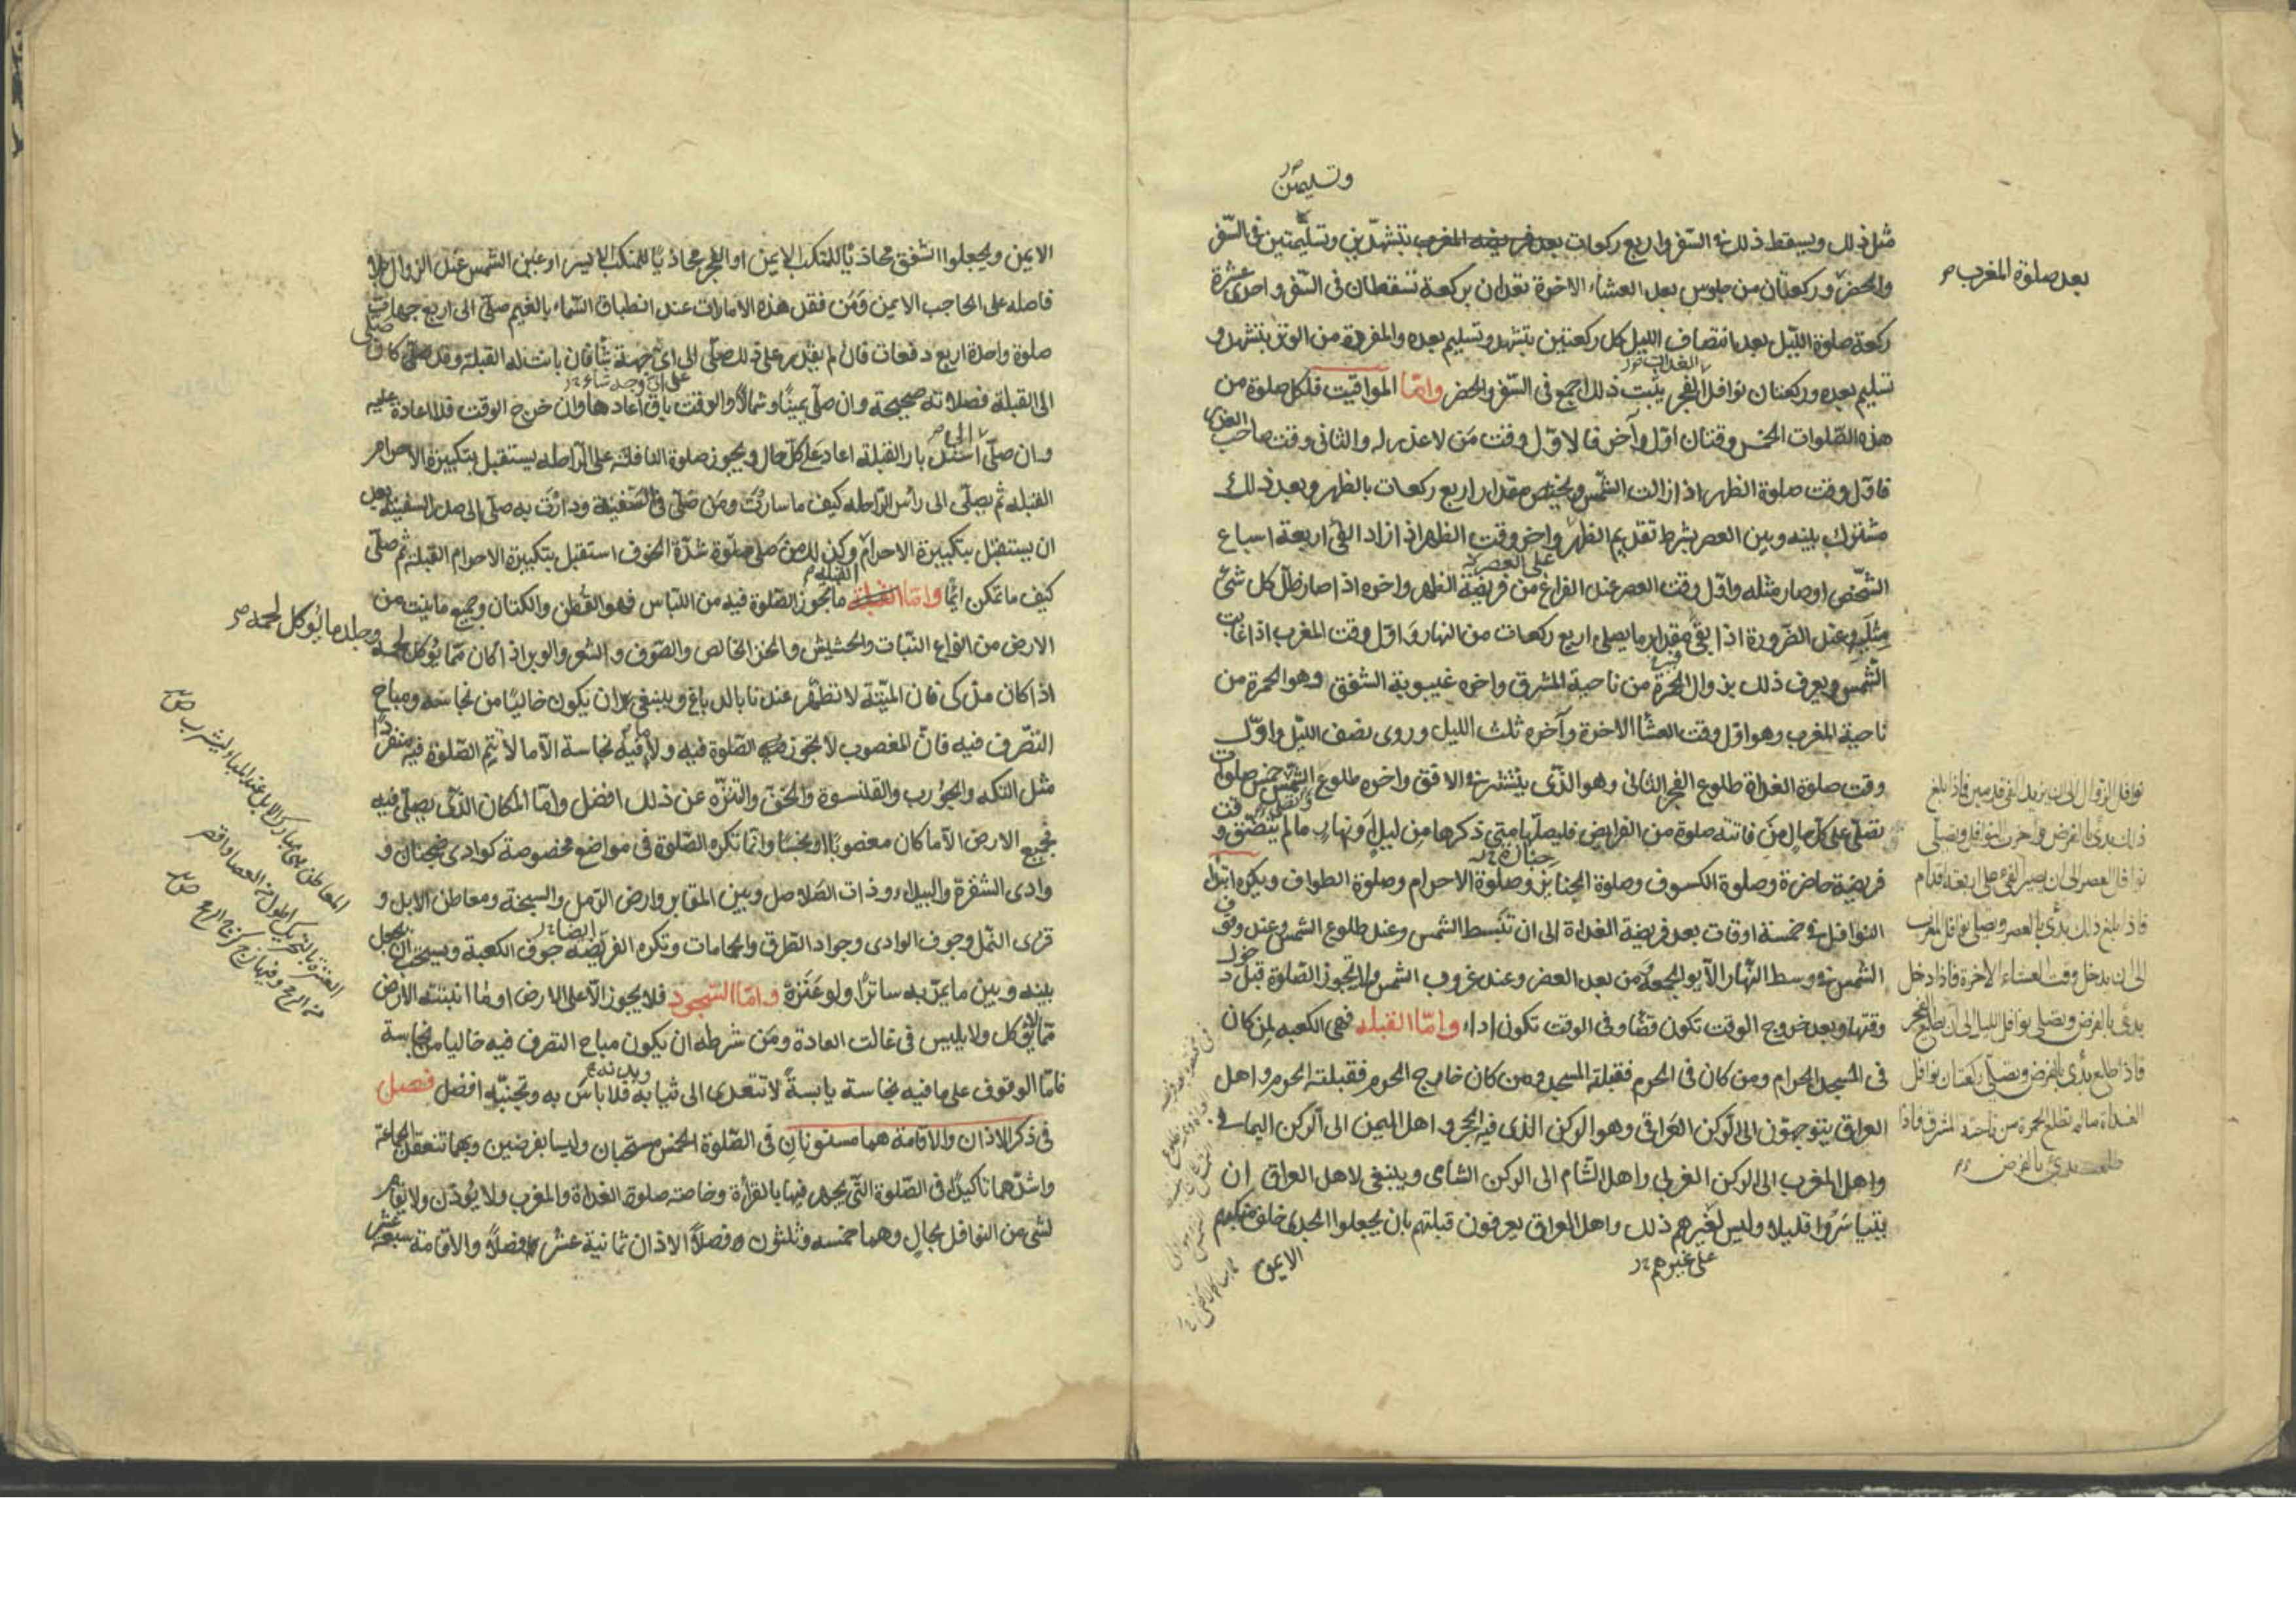 وتسليمتين
مثل ذلك ويسقط ذلك في السفر واربع ركعات بعد فريضة المغرب بتشهدين وتسليمتين في السفر
والحضر وركعتان من جلوس بعد العشاء الاخرة تعدان بركعة تسقطان في السفر واحدى عشرة
ركعة صلوة الليل بعد انتصاف الليل كل ركعتين بتشهد وتسليم بعده والمفردة من الوتر بتشهد و
تسليم بعده وركعتان نوافل الفجر يثبت ذلك اجمع في السفر والحضر وامّا المواقيت فلكل صلوة من
هذه الصلوات الخمس وقتان اوّل وآخر فالاوّل وقت مَن لا عذر له والثاني وقت صاحب العذر
فاوّل وقت صلوة الظهر اذا زالت الشمس ويختص مقدار اربع ركعات بالظهر وبعد ذلك
مشترك بينه وبين العصر بشرط تقديم الظهر واخر وقت الظهر اذا زاد الفئ اربعة اسباع
على العصر
الشخص او صار مثله واوّل وقت العصر عند الفراغ من فريضة الظهر واخره اذا صار ظلّ كل شئ
مثليه وعند الضرورة اذا بقي مقدار ما يصلى اربع ركعات من النهار وَاوّل وقت المغرب اذا غابت
الشمس ويعرف ذلك بزوال الحمرة من ناحية المشرق واخره غيبوبة الشفق وهو الحمرة من
ناحية المغرب وهو اوّل وقت العشاء الاخرة وآخره ثلث الليل وروى نصف الليل واوّل
وقت صلوة الغداة طلوع الفجر الثاني وهو الذي ينتشر في الافق واخره طلوع الشمس خمس صلوات
تصلّى على كلّ حال مَن فاتته صلوة من الفرايض فليصلّها متى ذكرها مِن ليلٍ او نهارٍ ما لم يتضيّق وقت
فريضة حاضرة وصلوة الكسوف وصلوة الجنايز وصلوة الاحرام وصلوة الطواف ويكره ابتداء
النوافل في خمسة اوقات بعد فريضة الغداة الى ان تنبسط الشمس وعند طلوع الشمس وعند وقوف
الشمس في وسط النهار الا يوم الجمعة ومن بعد العصر وعند غروب الشمس ولا تجوز الصلوة قبل دخول
وقتها وبعد خروج الوقت تكون قضاء وفي الوقت تكون اداء وامّا القبلة فهي الكعبة لمن كان
في المسجد الحرام ومن كان في الحرم فقبلته المسجد ومن كان خارج الحرم فقبلته الحرم واهل
العراق يتوجهون الى الركن العراقي وهو الركن الذي فيه الحجر واهل اليمن الى الركن اليماني
واهل المغرب الى الركن الغربي واهل الشام الى الركن الشامي وينبغي لاهل العراق ان
يتياسَرُوا قليلا وليس لغيرهم ذلك واهل العراق يعرفون قبلتهم بان يجعلوا الجدى خلف منكبهم
على غيرهم
الايمن
بعد صلوة المغرب
نوافل الزوال الى ان يزيد الفئ قدمين فاذا بلغ
ذلك بدئ بالفرض واخرت النوافل ويصلّى
نوافل العصر الى ان يصير الفئ على اربعة اقدام
فاذا بلغ ذلك بدئ بالعصر ويصلى نوافل المغرب
الى ان يدخل وقت العشاء الاخرة فاذا دخل
بدئ بالفرض ويصلى نوافل الليل الى ان يطلع الفجر
فاذا طلع بدئ بالفرض ويصلى ركعتان نوافل
الغداة ما لم تطلع الحمرة من ناحية المشرق فاذا
طلعت بدئ بالفرض
الايمن ويجعلوا الشفق محاذيًا للمنكب الايمن او الفجر محاذيًا للمنكب الايسر او عين الشمس عند الزوال بلا
فاصله على الحاجب الايمن وَمَن فقد هذه الامارات عند انطباق السماء بالغيم صلّى الى اربع جهات
صلوة واحدة اربع دفعات فان لم يقدر على ذلك صلّى الى اىّ جهة شاء فان بانت له القبلة وقد صلى كان صلى
على اىّ وجه شاء
الى القبلة فصلاته صحيحة وان صلّى يمينًا وشمالاً والوقت باق اعادها وان خرج الوقت فلا اعادة عليه
وان صلّى استدبار القبلة اعاد على كلّ حال ويجوز صلوة النافلة على الراحلة يستقبل بتكبيرة الاحرام
القبلة ثم يصلّى الى رأس الراحله كيف ما سارَت ومَن صلّى في السفينة ودارَت به صلّى الى صدر السفينة بعد
ان يستقبل بتكبيرة الاحرام وكذلك من صلى صلوة شدّة الخوف استقبل بتكبيرة الاحرام القبلة ثم صلّى
كيف ما تمكن ايماءً وامّا ما تجوز الصلوة فيه من اللباس فهو القطن والكتان وجميع ما ينبت من
الارض من انواع النبات والحشيش والخز الخالص والصوف والشعر والوبر اذا كان ممّا يؤكل لحمه
وجلد ما يُؤكل لحمه
اذا كان مذكى فان الميتة لا تطهر عندنا بالدباغ وينبغي ان يكون خاليًا من نجاسة ومباح
التصرّف فيه فانّ المغصوب لا تجوز الصلوة فيه ولا ما فيه نجاسة الّا ما لا تتم الصلوة فيه منفردًا
مثل التكة والجورب والقلنسوة والخفّ والتنزّه عن ذلك افضل وامّا المكان الذي يصلّى فيه
فجميع الارض الّا ما كان مغصوبًا او نجسًا وانما تكره الصلوة في مواضع مخصوصة كوادى ضجنان و
وادى الشقرة والبيداء وذات الصلاصل وبين المقابر وارض الرمل والسبخة ومعاطن الابل و
قرى النمل وجوف الوادى وجوادّ الطرق والحمامات وتكره الفريضة جوف الكعبة ويستحب ان يجعل
ايضا
بينه وبين ما يمرّ به ساترًا ولو عَنَزَة وامّا السجود فلا يجوز الّا على الارض او ما انبتته الارض
ممّا لا يؤكل ولا يلبس في غالب العادة ومَن شرطه ان يكون مباح التصرف فيه خاليا من نجاسة
وبدنه
فامّا الوقوف على ما فيه نجاسة يابسةً لا تتعدى الى ثيابه فلا باس به وتجنّبه افضل فصل
في ذكر الاذان والاقامة هما مسنونانِ في الصلوة الخمس مستحبان وليسا بفرضين وبهما تنعقد الجماعة
واشدّهما تاكيدًا في الصلوة التي يجهر فيها بالقراءة وخاصة صلوة الغداة والمغرب ولا يُوذن ولا يقام
لشئ من النوافل بحالٍ وهما خمسه وثلثون فصلاً الاذان ثمانية عشر فصلاً والاقامة سبعة عشر